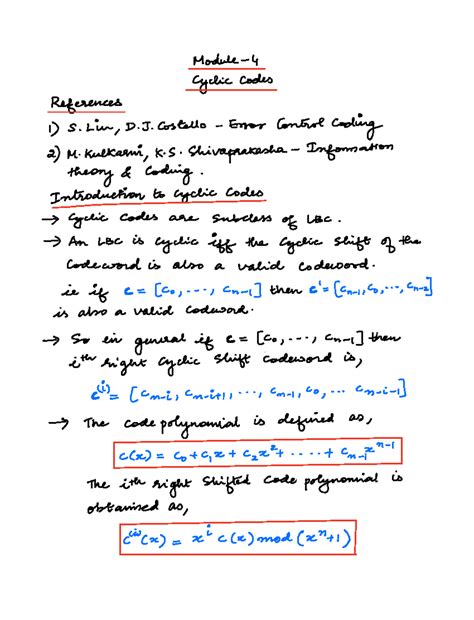 Module-4
Cyclic Codes
References
1) S. Lin, D.J. Costello - Error Control Coding
2) M. Kulkarni, K.S. Shivaprakasha - Information
theory & Coding.
Introduction to Cyclic Codes
→ Cyclic Codes are Subclass of LBC.
→ An LBC is Cyclic iff the Cyclic Shift of the
Codeword is also a valid codeword.
ie if c = [c₀, ---, cₙ₋₁] then c' = [cₙ₋₁, c₀, ---, cₙ₋₂]
is also a valid codeword.
→ So in general if c = [c₀, ---, cₙ₋₁] then
iᵗʰ right Cyclic Shift codeword is,
c⁽ⁱ⁾ = [cₙ₋ᵢ, cₙ₋ᵢ₊₁, ..., cₙ₋₁, c₀, ... cₙ₋ᵢ₋₁]
→ The code polynomial is defined as,
c(x) = c₀ + c₁x + c₂x² + ..... + cₙ₋₁xⁿ⁻¹
The iᵗʰ right Shifted Code polynomial is
obtained as,
c⁽ⁱ⁾(x) = xⁱ c(x) mod (xⁿ+1)